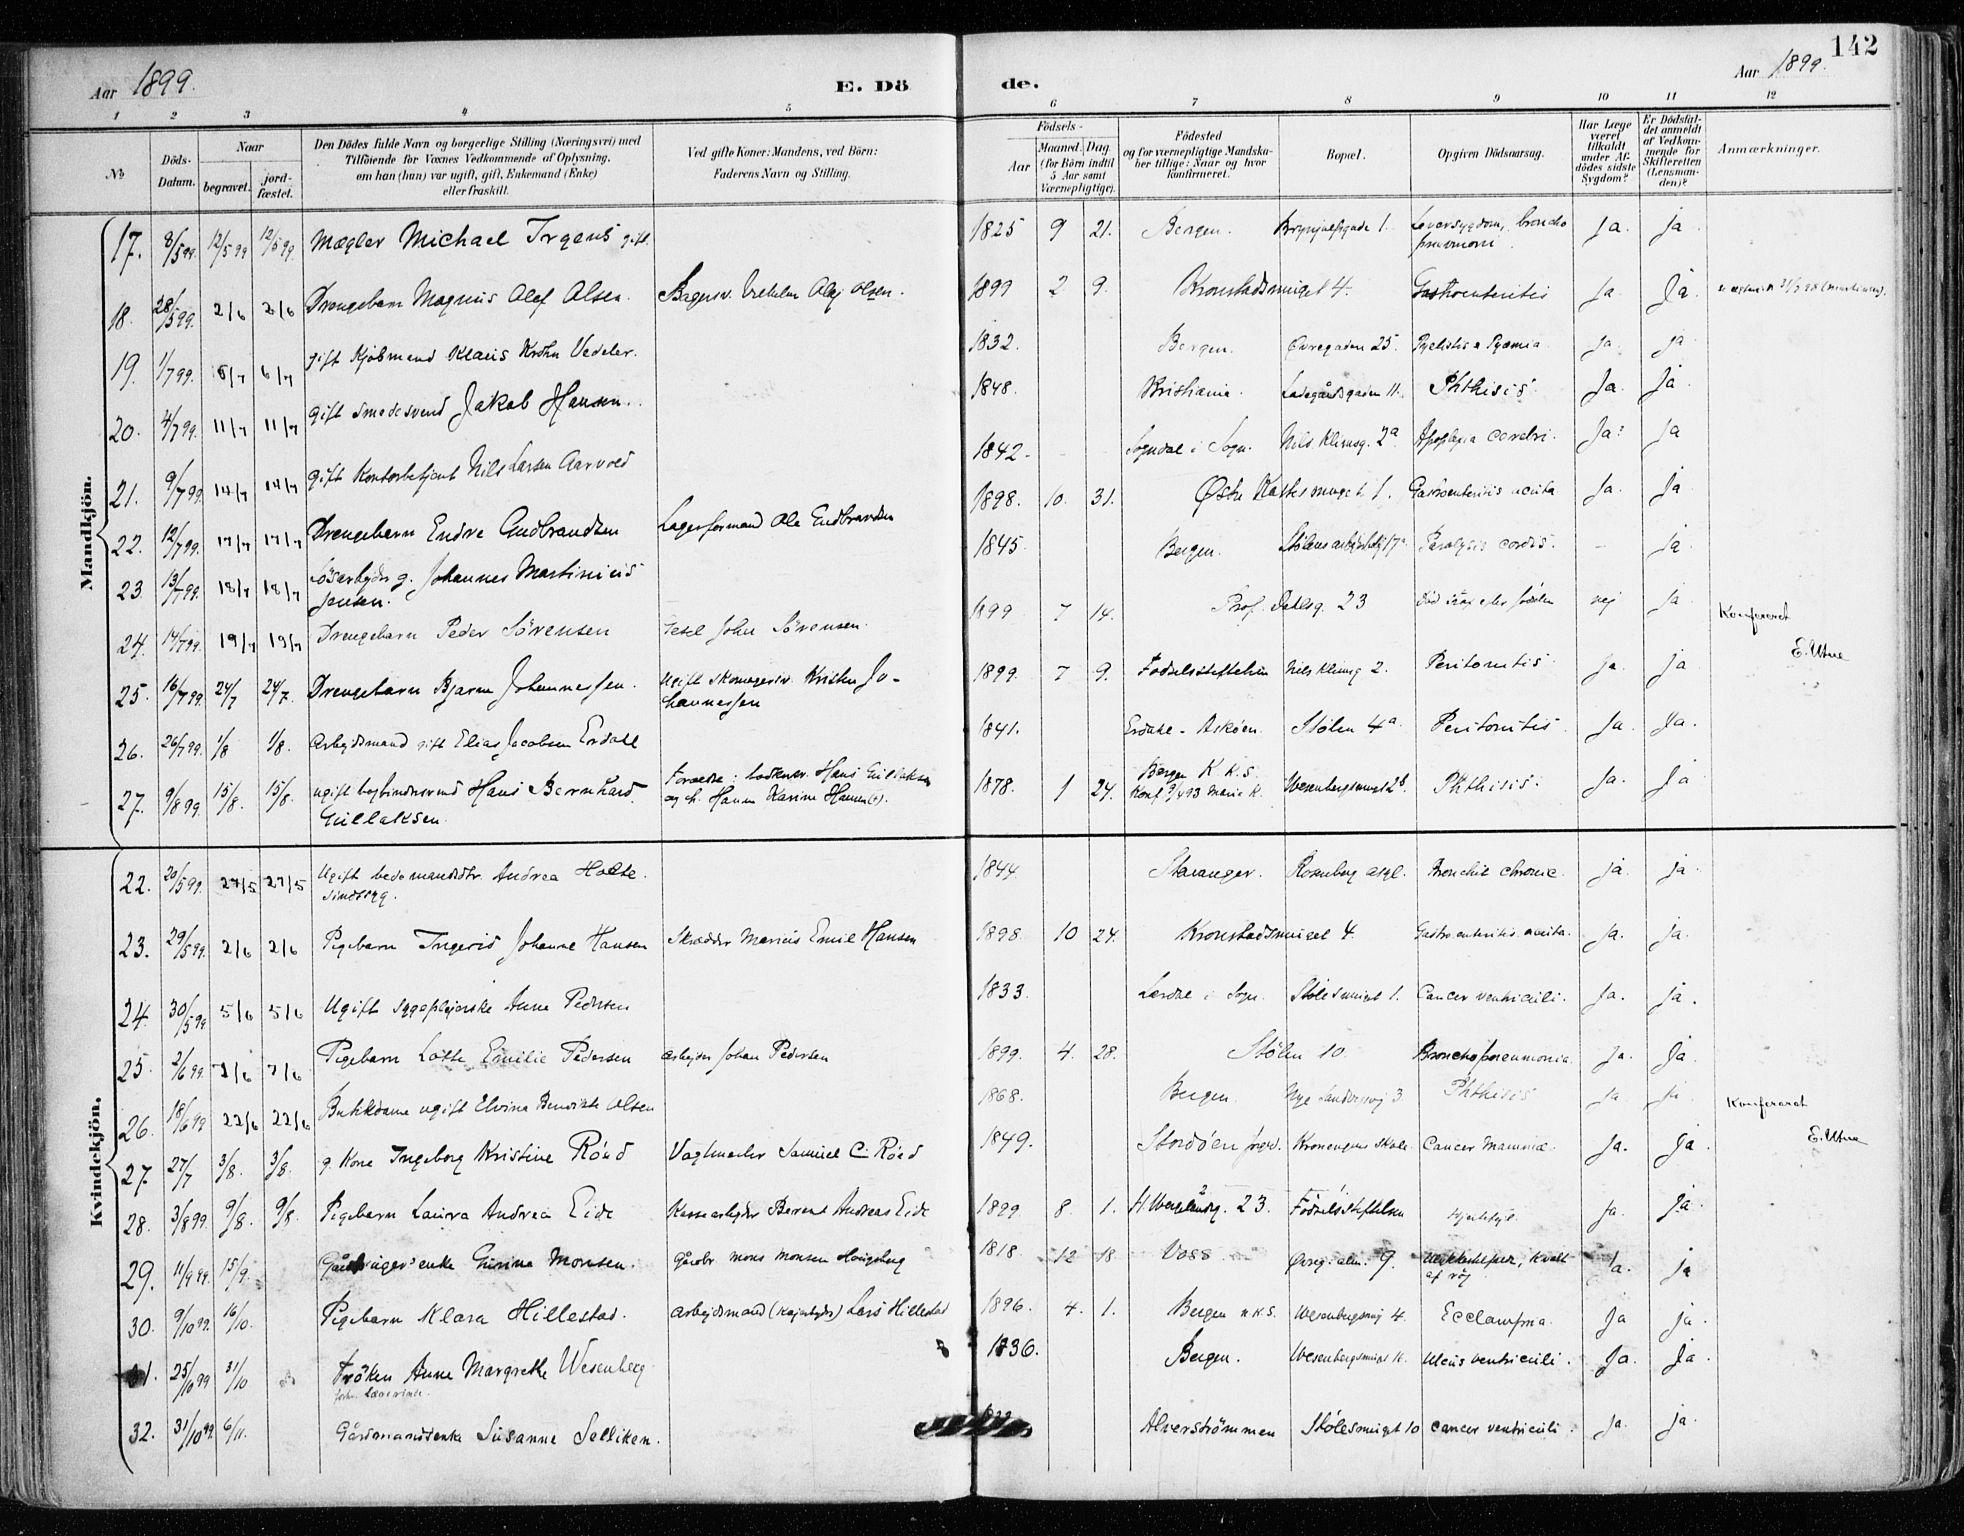 142
Aar 1899.
E. Dö
de.
Aar 1899.
1 2 3 4 5 6 7 8 9 10 11 12
No
Döds-Datum.
Naar
begravet.
jord-fæstet.
Den Dödes fulde Navn og borgerlige Stilling (Næringsvei) med
Tilföiende for Voxnes Vedkommende af Oplysning,
om han (hun) var ugift, gift, Enkemand (Enke)
eller fraskilt.
Ved gifte Koner: Mandens, ved Börn:
Faderens Navn og Stilling.
Födsels-
Aar
Maaned. Dag
(for Börn indtil
5 Aar samt
Værnepligtige).
Födested
og for værnepligtige Mandska-
ber tillige: Naar og hvor
konfirmeret.
Bopæl.
Opgiven Dödsaarsag.
Har Læge
været
tilkaldt
under Af-
dödes sidste
Sygdom?
Er Dödsfal-
det anmeldt
af Vedkom-
mende for
Skifteretten
(Lensman-
den)?
Anmærkninger.
Mandkjön.
17. 8/5 99. 12/5 99 12/5 99. Mægler Michael Irgens gift. 1825 9 21. Bergen. Leversygdom, broncho Ja. ja.
pneumoni
18. 28/5 99. 2/6 2/6 Drengebarn Magnus Olaf Olsen. Olaf Olsen. 1899 2 9. Kronstadsmuget 4. Gastroenteritis Ja. Ja.
19. 1/7 99. 6/7 6/7 gift Kjøbmand Klaus Krohn Vedeler. 1832. Bergen. Øvregaden 25. Pyæmia. Ja. ja.
20. 4/7 99. 11/7 11/7 gift smedesvend Jakob Hansen. 1848. Kristiania. Ladegårdsgaden 11. Phthisis. Ja. ja.
21. 9/7 99. 14/7 14/7 gift Kontorbetjent Nils Larsen Aarvold 1842 Sogndal i Sogn. Nils Klimsg. 2a Apoplexia cerebri. Ja. ja
22. 12/7 99. 17/7 17/7 Drengebarn Endre Gudbrandsen Lagerformand Ole Gudbrandsen 1898. 10. 31. 1. Gastroenteritis acuta Ja. ja.
23. 13/7 99. 18/7 18/7 Løsarbejder g. Johannes Martinius 1845. Bergen. Paralysis cordis. - ja.
Jensen.
24. 14/7 99. 19/7 19/7 Drengebarn Peder Sörensen John Sörensen. 1899 7 14. Prof. Dahlsg. 23 nej ja. Konfereret
E. Utne
25. 16/7 99. 24/7 24/7. Drengebarn Bjarne Johannessen. Ugift skomagersv. Kristen Jo- 1899. 7 9. Fødselsstiftelsen Nils Klimsg 2. Peritonitis. Ja. ja.
hannessen
26. 26/7 99. 1/8 1/8. Arbejdsmand gift Elias Jacobsen Erdal 1841. Erdal - Askøen. Stølen 4a. Peritonitis. Ja. Ja.
27. 9/8 99. 15/8. 15/8. ugift bogbindersvend Hans Bernhard Forældre: Hans Gullaksen 1878. 1 24. Bergen K.K.S. Wesenbergsmuget 2b. Phthisis. Ja. Ja
Gullaksen. og h. Hanna Karine Hansen Konf Maria K.
Kvindekjön.
22. 20/5 99. 27/5 27/5 Ugift bedemandsdtr. Andrea Holte. 1844. Stavanger. Rosenberg asyl. Bronchit chronic. ja. ja.
sindssyg.
23. 29/5 99. 2/6 2/6 Pigebarn Ingerid Johanne Hansen Skrædder Marius Emil Hansen 1898. 10 24. Kronstadsmuget 4. Gastroenteritis acuta. Ja. ja.
24. 30/5 99 5/6 5/6 Ugift sygeplejerske Anne Pedersen 1833. Lærdal i Sogn. Stølesmuget 1. Cancer ventriculi. Ja. ja.
25. 2/6 99. 7/6 7/6 Pigebarn Lotte Emilie Pedersen arbejder Johan Pedersen 1899. 4. 28. Stølen 10. Bronchopneumonia Ja. Ja.
26. 18/6 99 22/6 22/6 Butikdame ugift Elvina Olsen 1868. Bergen. Nye Sandersvej 3 Phthisis Ja. Konfereret
E. Utne
27. 27/7 3/8. 3/8. g. Kone Ingeborg Kristine Röed Vagtmester Samuel C. Röed 1849. Stordöen Cancer Mammæ. Ja. ja.
28. 3/8 99. 9/8. 9/8. Pigebarn Laura Andrea Eide Berent Andreas Eide 1899. 8. 1. H. Wergelandsg. 23. Födselsstiftelsen Hjertefejl. Ja. ja.
29. 11/9 99. 15/9. enke Gurina Monsen. Gårdbr Mons Monsen Haugsberg 1818. 12 18. Voss. Øvreg. alm. 9. Kvalt Ja. ja
af røg
30. 9/10 99. 16/10. Pigebarn Klara Hillestad. Arbejdsmand (Kajarbejder) Lars Hillestad 1896. 4. 1. Bergen n.K.S. Wesenbergsmug 4. Ecclampsia. Ja ja.
31. 25/10 99 31/10 Fröken Anne Margrethe Wesenberg 1836. Bergen. Wesenbergsmuget Ulcus ventriculi. Ja. Ja.
forhv. Lærerinde.
32. 31/10 99. 6/11. Gårdmandsenke Susanne Selliken. Alverströmmen Stølesmuget 10 Cancer ventriculi. Ja. ja.